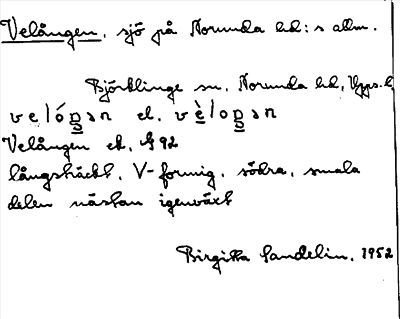 Velången, sjö på Norunda hd:s allm.
Björklinge sn, Norunda hd, Upps. l.
velóŋən el. vèloŋən
Velången ek. § 92
långsträckt, V-formig, södra, smala
delen nästan igenväxt
Birgitta Sandelin, 1952